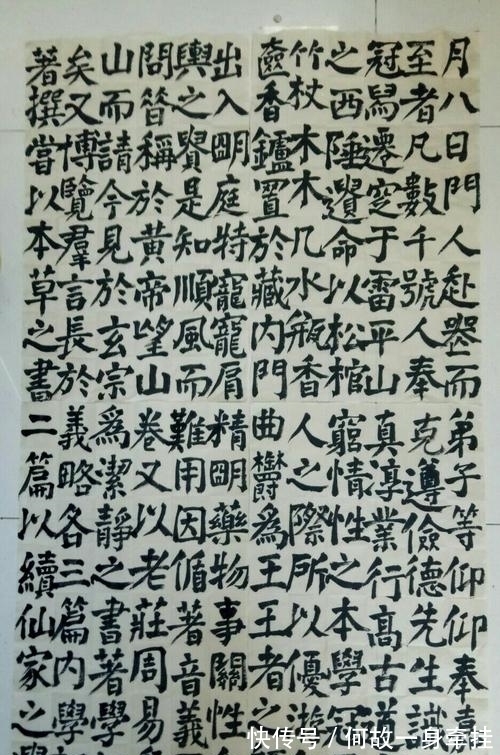 月八日門人赴塟而弟子等仰仰奉喜
至者凡數千號人奉克遵儉德先生識
冠舄遷窆于雷平山真淳業行高古道
之西陲遺命以松棺窮情性之本學冠
竹杖木木几水瓶香人之際所以優游
奩香鑪置於藏内門曲欝為王王者之
出入眀庭特寵寵肩精眀藥物事關性
輿之賢是知順風而難用因循著音義
問昝稱於黄帝望山卷又以老莊周易
山而請今見於玄宗為潔静之書著學
矣又博覽羣言長於義略各三篇内學
著撰嘗以本草之書二篇以續仙家之
快传号/何故一身牵挂